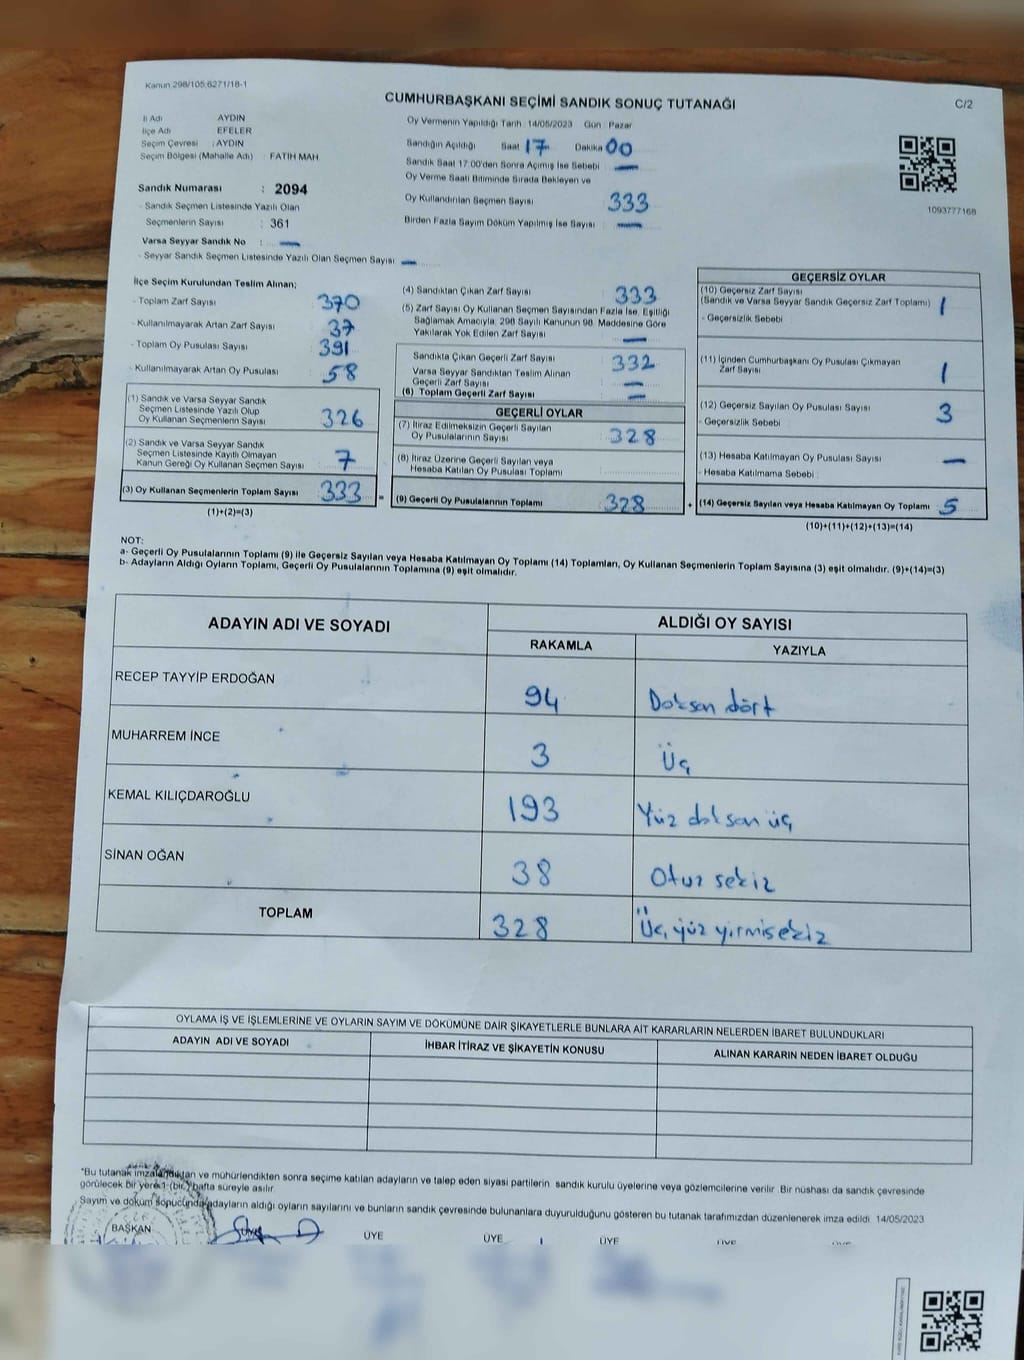 Kanun 298/105,6271/18-1
CUMHURBAŞKANI SEÇİMİ SANDIK SONUÇ TUTANAĞI
C/2
İl Adı AYDIN
İlçe Adı EFELER
Seçim Çevresi : AYDIN
Seçim Bölgesi (Mahalle Adı) : FATIH MAH.
Oy Vermenin Yapıldığı Tarih : 14/05/2023 Gün : Pazar
Sandığın Açıldığı Saat 17 Dakika 00
Sandık Saat 17:00'den Sonra Açılmış İse Sebebi : —
Oy Verme Saati Bitiminde Sırada Bekleyen ve
Oy Kullandırılan Seçmen Sayısı 333
Birden Fazla Sayım Döküm Yapılmış İse Sayısı : —
1093777168
Sandık Numarası : 2094
- Sandık Seçmen Listesinde Yazılı Olan
Seçmenlerin Sayısı : 361
Varsa Seyyar Sandık No : —
- Seyyar Sandık Seçmen Listesinde Yazılı Olan Seçmen Sayısı : —
İlçe Seçim Kurulundan Teslim Alınan;
- Toplam Zarf Sayısı 370
- Kullanılmayarak Artan Zarf Sayısı 37
- Toplam Oy Pusulası Sayısı 391
- Kullanılmayarak Artan Oy Pusulası 58
(1) Sandık ve Varsa Seyyar Sandık
Seçmen Listesinde Yazılı Olup
Oy Kullanan Seçmenlerin Sayısı 326
(2) Sandık ve Varsa Seyyar Sandık
Seçmen Listesinde Kayıtlı Olmayan
Kanun Gereği Oy Kullanan Seçmen Sayısı 7
(3) Oy Kullanan Seçmenlerin Toplam Sayısı 333 =
(1)+(2)=(3)
(4) Sandıktan Çıkan Zarf Sayısı : 333
(5) Zarf Sayısı Oy Kullanan Seçmen Sayısından Fazla İse, Eşitliği
Sağlamak Amacıyla, 298 Sayılı Kanunun 98. Maddesine Göre
Yakılarak Yok Edilen Zarf Sayısı : —
Sandıkta Çıkan Geçerli Zarf Sayısı : 332
Varsa Seyyar Sandıktan Teslim Alınan
Geçerli Zarf Sayısı : —
(6) Toplam Geçerli Zarf Sayısı : —
GEÇERLİ OYLAR
(7) İtiraz Edilmeksizin Geçerli Sayılan
Oy Pusulalarının Sayısı : 328
(8) İtiraz Üzerine Geçerli Sayılan veya
Hesaba Katılan Oy Pusulası Toplamı
(9) Geçerli Oy Pusulalarının Toplamı 328 +
GEÇERSİZ OYLAR
(10) Geçersiz Zarf Sayısı
(Sandık ve Varsa Seyyar Sandık Geçersiz Zarf Toplamı) 1
- Geçersizlik Sebebi :
(11) İçinden Cumhurbaşkanı Oy Pusulası Çıkmayan
Zarf Sayısı 1
(12) Geçersiz Sayılan Oy Pusulası Sayısı 3
- Geçersizlik Sebebi
(13) Hesaba Katılmayan Oy Pusulası Sayısı —
- Hesaba Katılmama Sebebi :
(14) Geçersiz Sayılan veya Hesaba Katılmayan Oy Toplamı 5
(10)+(11)+(12)+(13)=(14)
NOT:
a- Geçerli Oy Pusulalarının Toplamı (9) ile Geçersiz Sayılan veya Hesaba Katılmayan Oy Toplamı (14) Toplamları, Oy Kullanan Seçmenlerin Toplam Sayısına (3) eşit olmalıdır. (9)+(14)=(3)
b- Adayların Aldığı Oyların Toplamı, Geçerli Oy Pusulalarının Toplamına (9) eşit olmalıdır.
ADAYIN ADI VE SOYADI
ALDIĞI OY SAYISI
RAKAMLA YAZIYLA
RECEP TAYYİP ERDOĞAN 94 Doksan dört
MUHARREM İNCE 3 Üç
KEMAL KILIÇDAROĞLU 193 Yüz doksan üç
SİNAN OĞAN 38 Otuz sekiz
TOPLAM 328 Üç yüz yirmisekiz
OYLAMA İŞ VE İŞLEMLERİNE VE OYLARIN SAYIM VE DÖKÜMÜNE DAİR ŞİKAYETLERLE BUNLARA AİT KARARLARIN NELERDEN İBARET BULUNDUKLARI
ADAYIN ADI VE SOYADI İHBAR İTİRAZ VE ŞİKAYETİN KONUSU ALINAN KARARIN NEDEN İBARET OLDUĞU
*Bu tutanak imzalandıktan ve mühürlendikten sonra seçime katılan adayların ve talep eden siyasi partilerin sandık kurulu üyelerine veya gözlemcilerine verilir. Bir nüshası da sandık çevresinde
görülecek bir yere 1 (bir) hafta süreyle asılır.
Sayım ve döküm sonucunda adayların aldığı oyların sayılarını ve bunların sandık çevresinde bulunanlara duyurulduğunu gösteren bu tutanak tarafımızdan düzenlenerek imza edildi. 14/05/2023
BAŞKAN ÜYE ÜYE ÜYE ÜYE ÜYE ÜYE